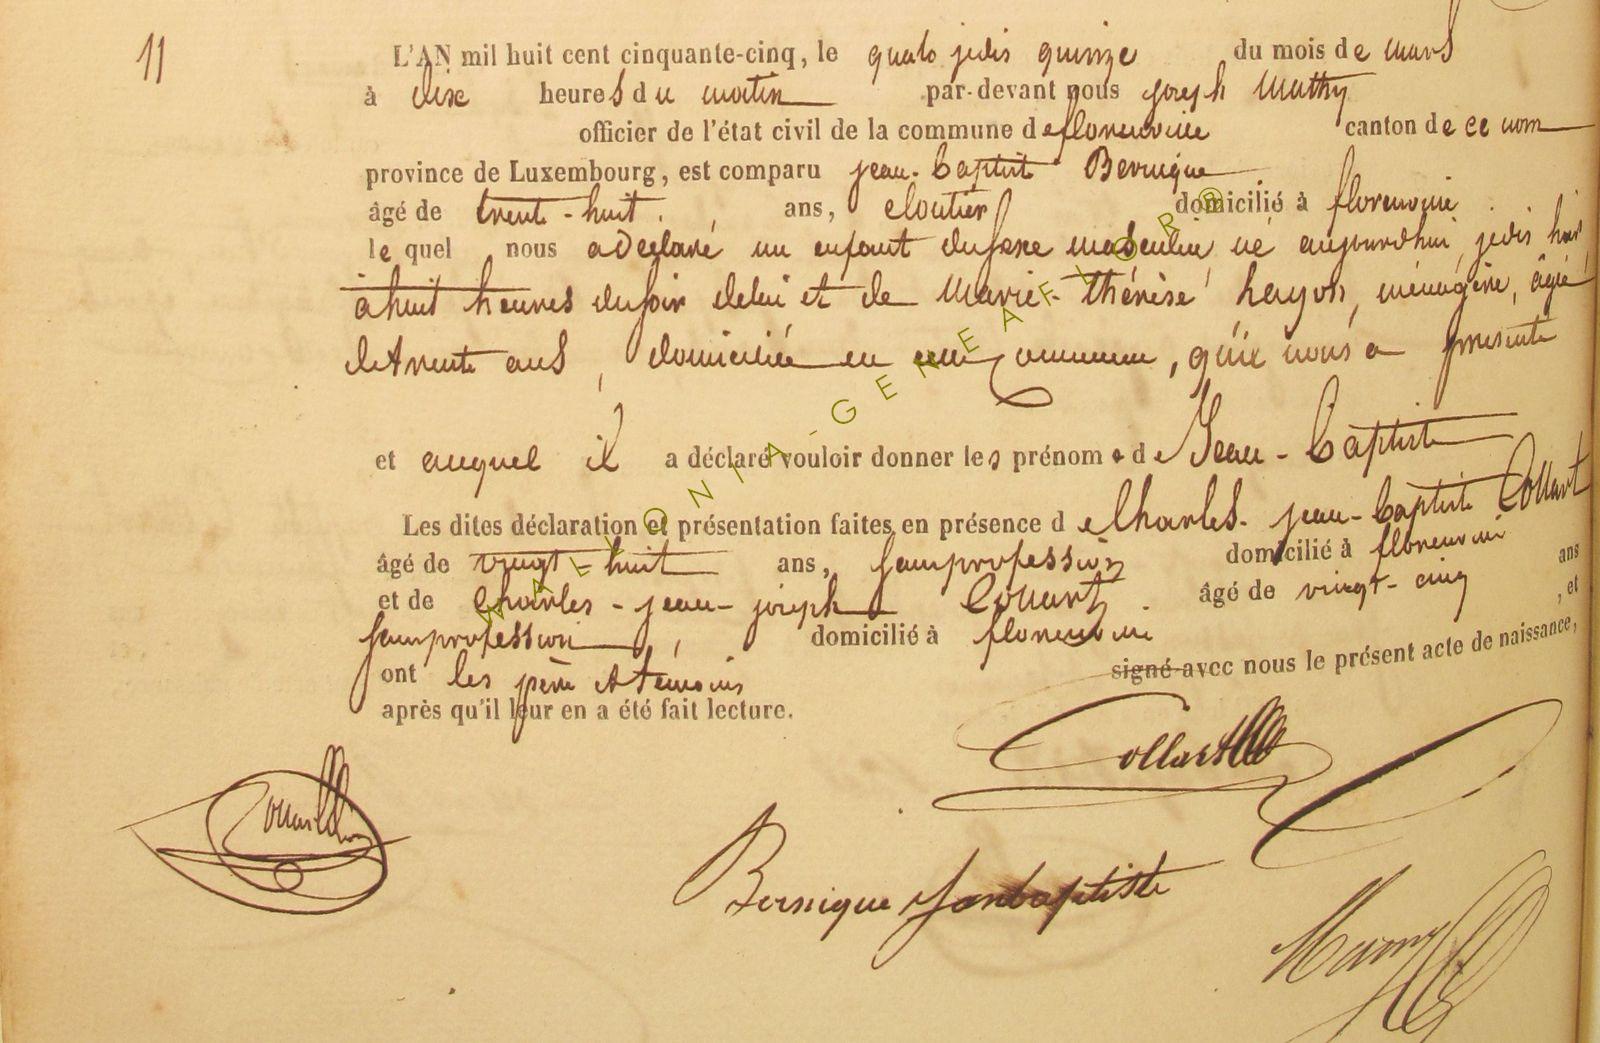 11
L'AN mil huit cent cinquante-cinq, le quinze du mois de mars
à dix heures du matin par-devant nous joseph Mathy
officier de l'état civil de la commune de florenville canton de ce nom
province de Luxembourg, est comparu jean-Baptiste Bernique
âgé de trente-huit ans, cloutier domicilié à florenville
le quel nous a declaré un enfant du sexe masculin né aujourd'hui,
à huit heures du soir de lui et de Marie-thérèse hayon, ménagère, âgée
de trente ans, domiciliée en commune, qu'il nous a presenté
et auquel il a déclaré vouloir donner les prénoms de Jean-Baptiste
Les dites déclaration et présentation faites en présence de Charles-jean-baptiste Collart
âgé de vingt-huit ans, sans profession domicilié à florenville
et de Charles-jean-joseph Collart âgé de vingt-cinq ans
sans profession, domicilié à florenville, et
ont les père et temoins signé avec nous le présent acte de naissance,
après qu'il leur en a été fait lecture.
Collart
Collart
Bernique Janbaptiste
WALLONIA-GENEAFLORB